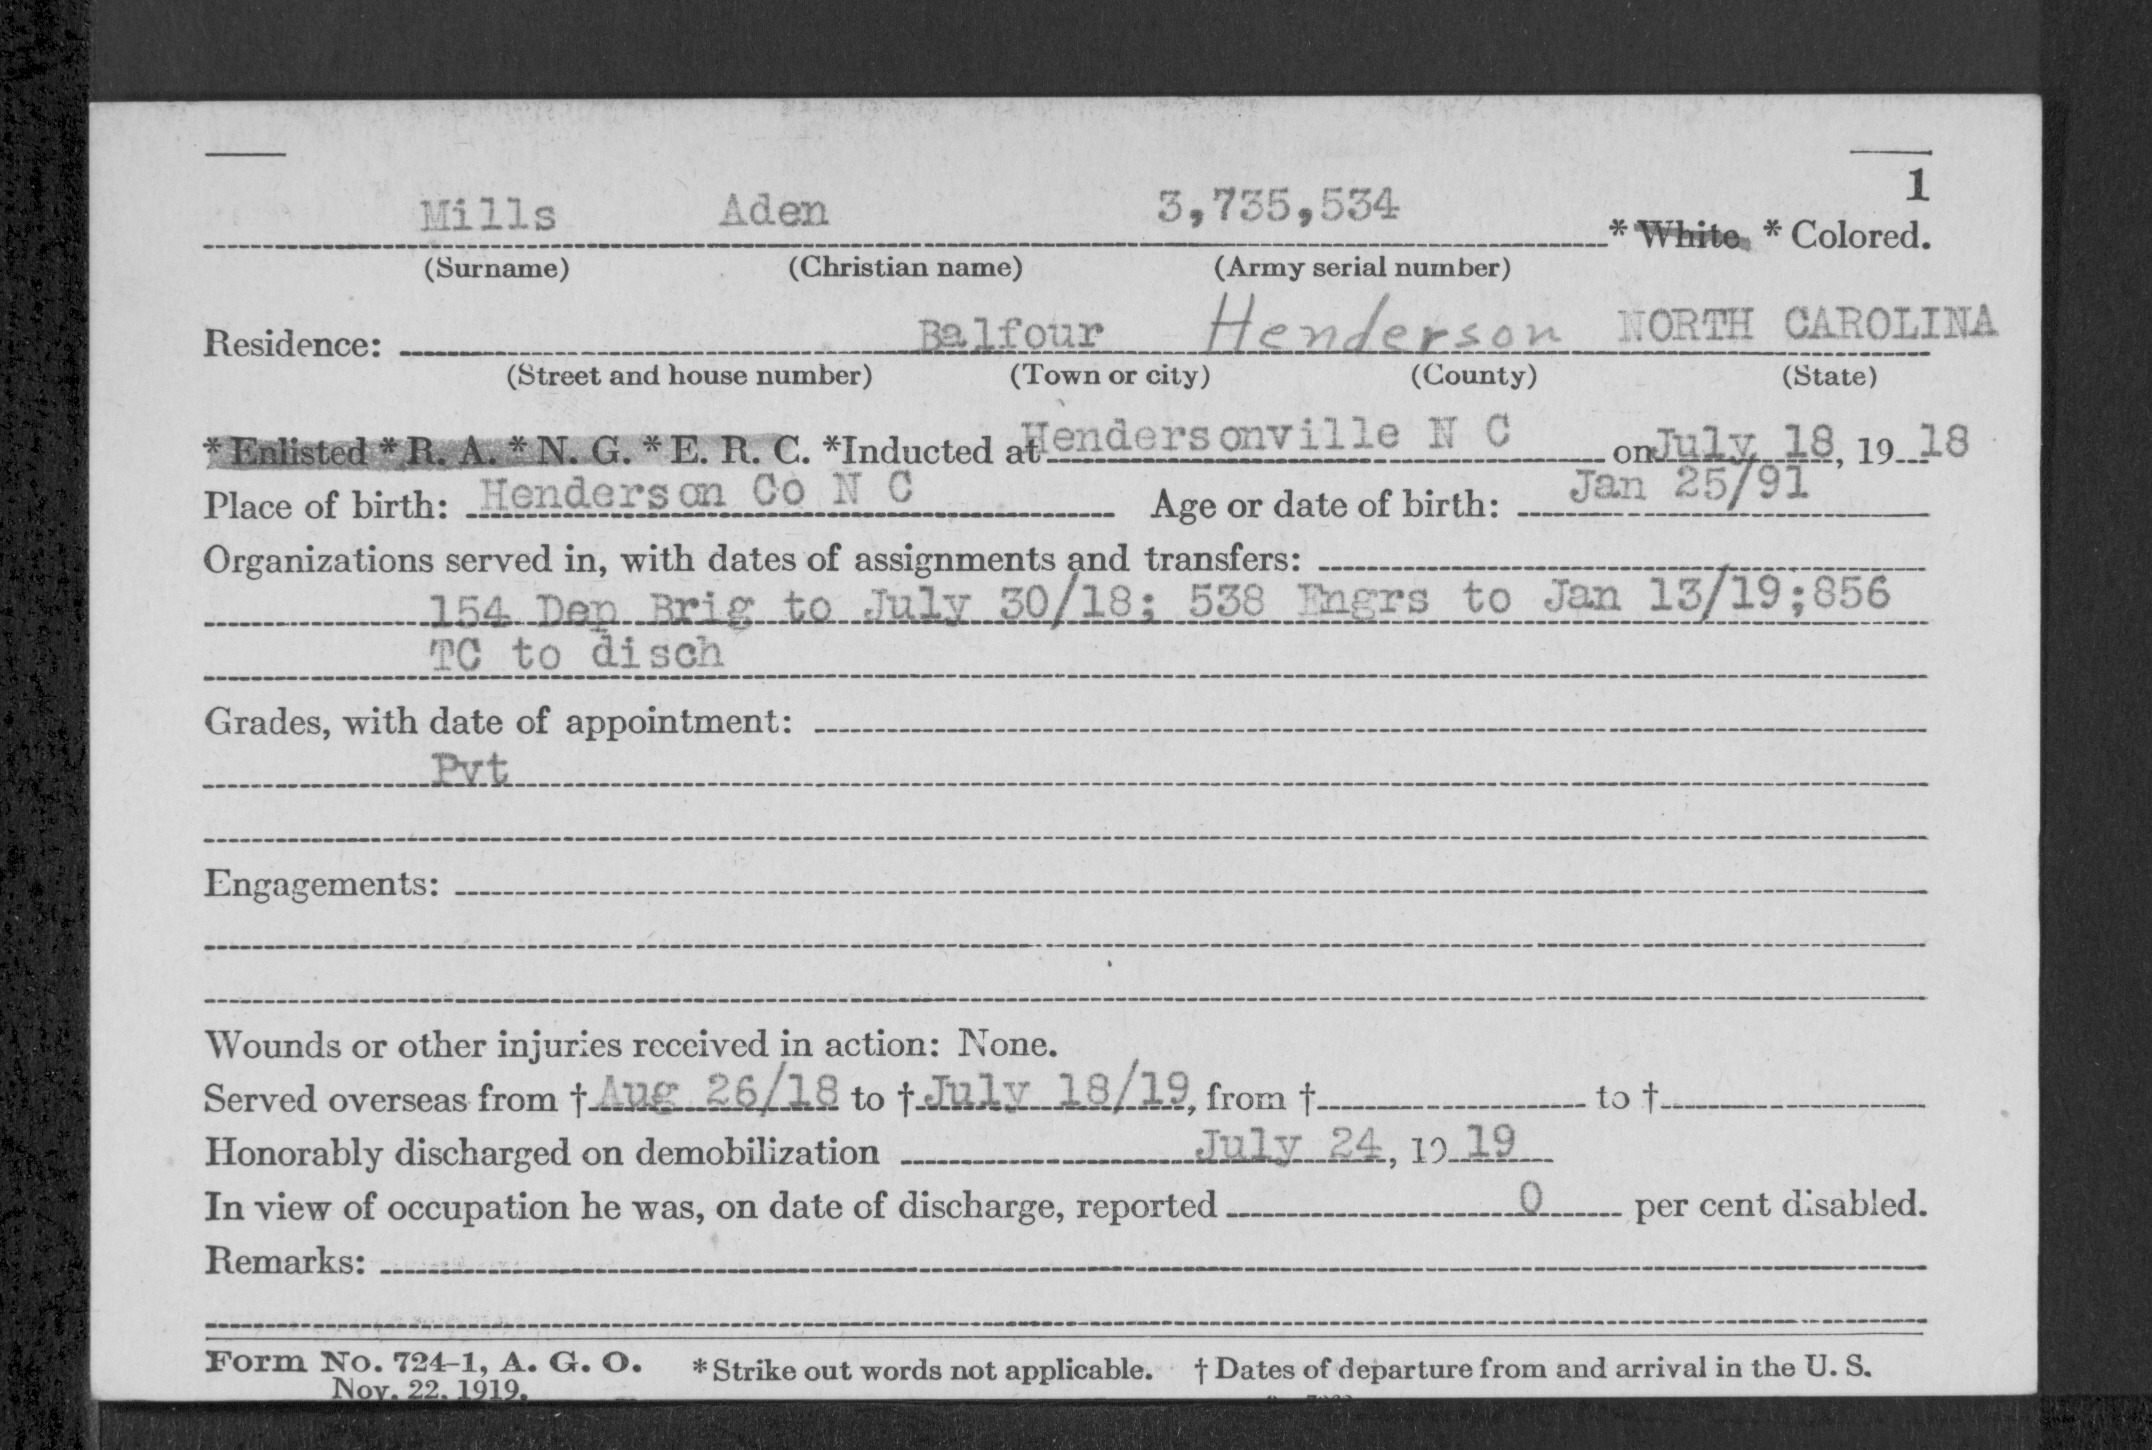 1
Mills Aden 3,735,534 * White * Colored.
(Surname) (Christian name) (Army serial number)
Residence: Balfour Henderson NORTH CAROLINA
(Street and house number) (Town or city) (County) (State)
* Enlisted * R. A. * N. G. * E. R. C. *Inducted at Hendersonville N C on July 18, 19 18
Place of birth: Henderson Co N C Age or date of birth: Jan 25/91
Organizations served in, with dates of assignments and transfers:
154 Dep Brig to July 30/18; 538 Engrs to Jan 13/19;856
TC to disch
Grades, with date of appointment:
Pvt
Engagements:
Wounds or other injuries received in action: None.
Served overseas from † Aug 26/18 to † July 18/19, from † to †
Honorably discharged on demobilization July 24, 19 19
In view of occupation he was, on date of discharge, reported 0 per cent disabled.
Remarks:
Form No. 724-1, A. G. O. * Strike out words not applicable. † Dates of departure from and arrival in the U. S.
Nov. 22, 1919.